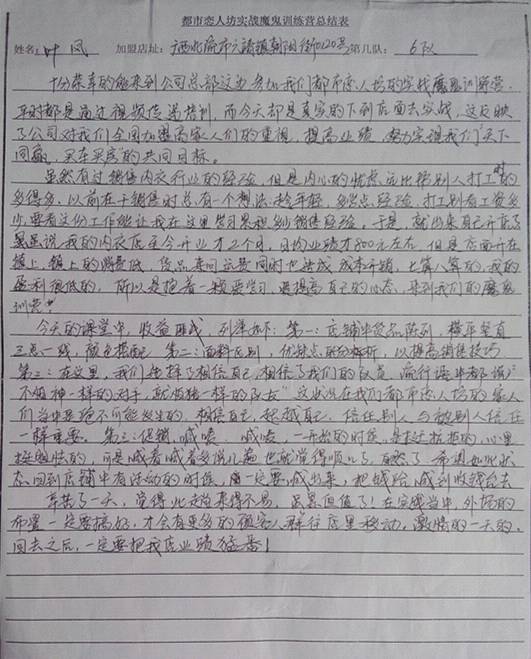 都市恋人坊实战魔鬼训练营总结表
姓名：叶风 加盟店址： 第几队：6队
十分荣幸的能来到公司总部这边参加我们都市恋人坊的实战魔鬼训练营，
平时都是通过视频传送培训，而今天却是真实的下到店面去实战，这反映
了公司对我们全国加盟商家人们的重视，提高业绩，努力实现我们"天下
同赢，买车买房"的共同目标。
虽然有过销售内衣行业的经验，但是内心的忧虑远比帮别人打工时
多得多，以前在干销售时总有一个想法趁年轻，多学点经验，打工别看工资多
少，要看这份工作能让我在这里学习累积多少销售经验。于是，就出来自己开店了
我的内衣店至今开业才2个月，日均业绩才800元左右，但是店面开在
镇上，镇上的消费低，货品来回运费同时也造成成本开销，七算八算的，我的
盈利很低的，所以是抱着一颗要学习，要提高自己的心态，来到我们的魔鬼
训营！
今天的课堂中，收益颇多，列举如下：第一：店铺中货品陈列，横平竖直
三点一线，颜色搭配 第二：面料区别，优缺点的分析，以提高销售技巧
第三：在这里，我们选择了相信自己，相信了我们的队员，流行语中都说"
不怕神一样的对手，就怕猪一样的队友"这状况在我们都市恋人坊的家人
们当中是绝不可能发生的，相信自己，超越自己，信任别人，与被别人信任
一样重要。第三：促销，喊唛，喊唛，一开始的时候，是抗拒的，心里
挺的，可是喊着喊着多喊几遍也就觉得顺口了，自然了，希望如此状
态回到店铺中有活动的时候，固一定要喊出来，把钱给喊到收钱台去
辛苦了一天，觉得此趟来得不易，虽累但值了！在实战当中，外场的
布置一定要搞好，才会有更多的顾客人群往店里移动，激情的一天的。
回去之后，一定要把我店业绩猛番！